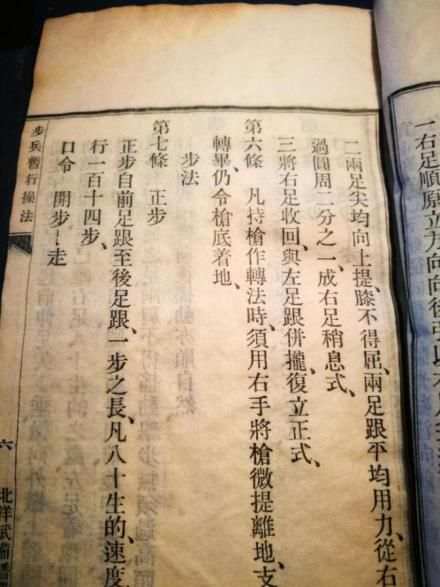 一右足順原立方向向後
二兩足尖均向上提、膝不得屈、兩足跟平均用力、從右
過圓周二分之一、成右足稍息式、
三將右足收回、與左足併攏、復立正式、
第六條 凡持槍作轉法時、須用右手將槍微提離地、支
轉畢、仍令槍底着地、
步法
第七條 正步
正步自前足跟至後足跟、一步之長、凡八十生的、速度
行一百十四步、
口令 開步—走
步兵暫行操法 六 北洋武備